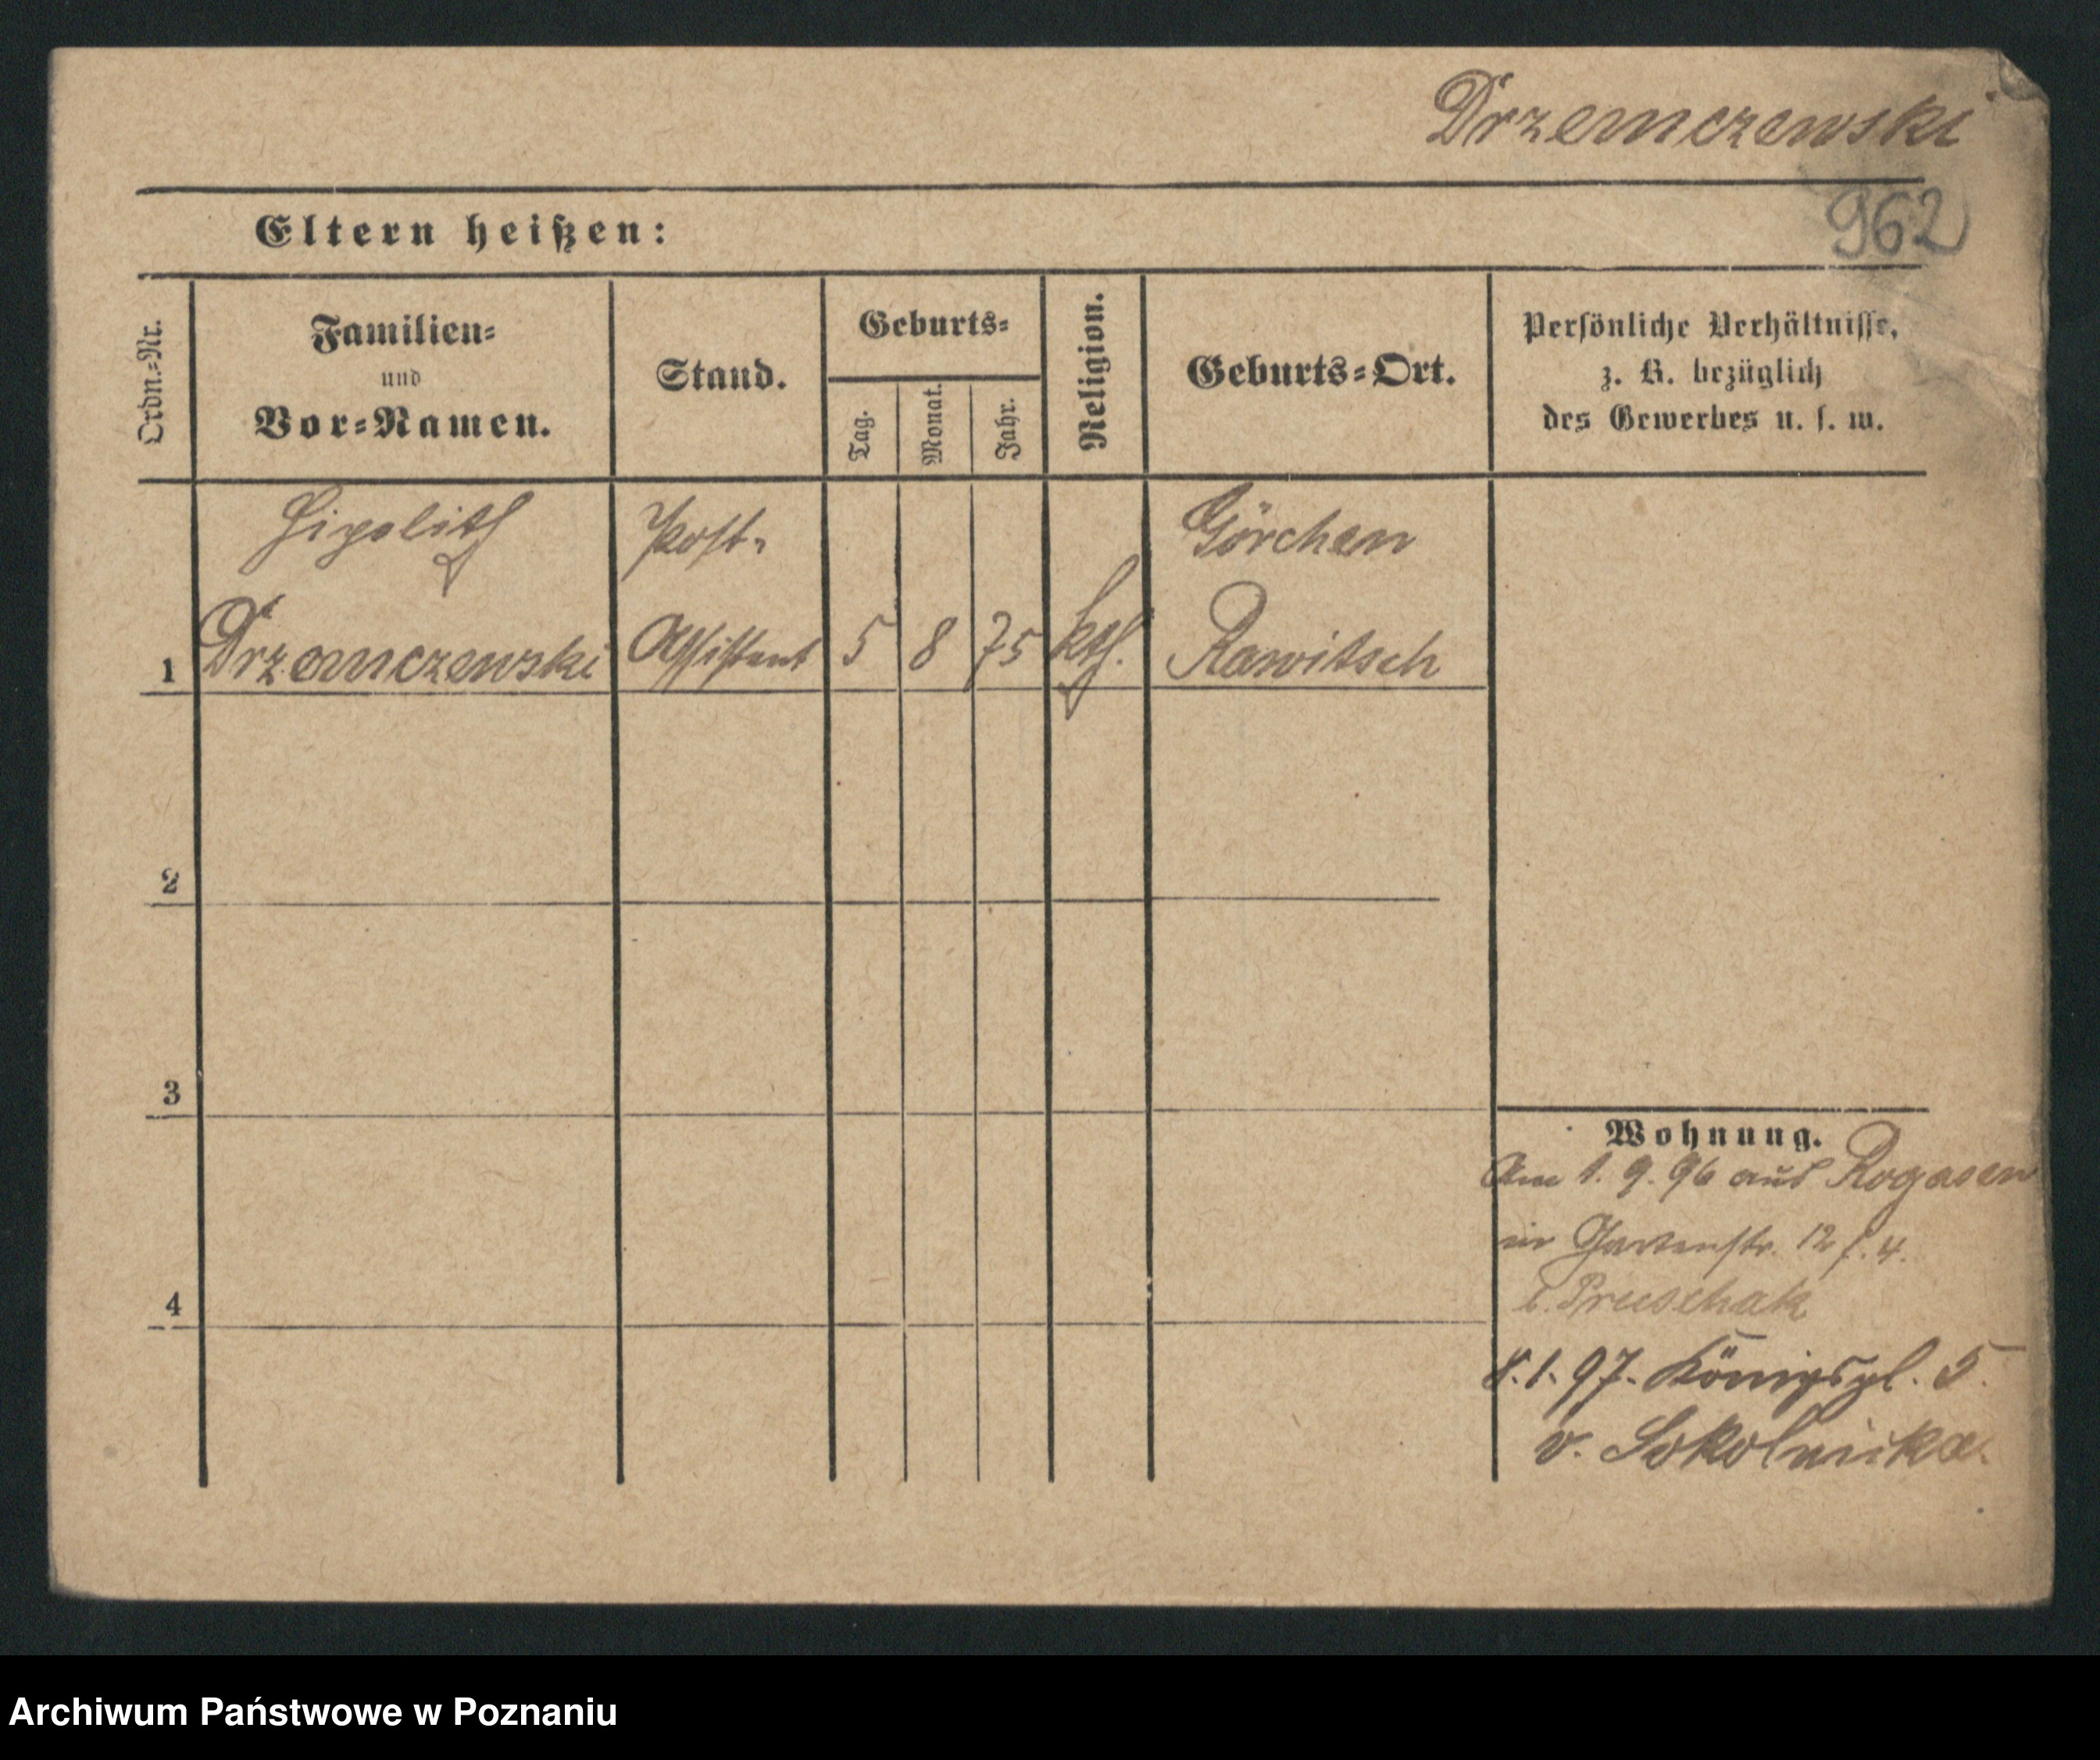 Drzemczewski
962
Eltern heißen:
Ordn.=Nr.
Familien=
und
Vor=Namen.
Stand.
Geburts=
Tag.
Monat.
Jahr.
Religion.
Geburts=Ort.
Persönliche Verhältnisse,
z. B. bezüglich
des Gewerbes u. s. w.
Hipolith Post- Görchen
1 Drzemczewski Assistent 5 8 75 kth. Rawitsch
2
3
4
Wohnung.
Am 1. 9. 96 aus Rogasen
in Gartenstr. 12 4.
Pruschak
8. 1. 97. Königspl. 5.
v. Sokolnicka.
Archiwum Państwowe w Poznaniu